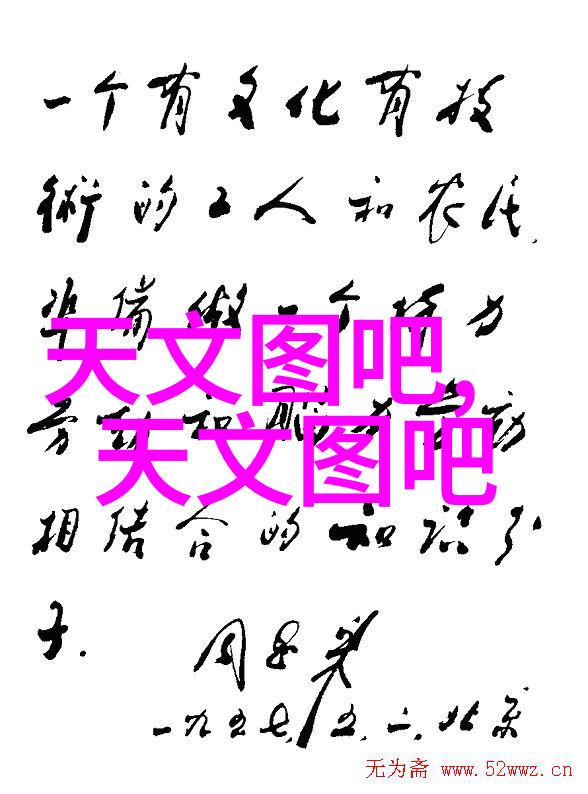 一个有文化有技
術的工人和农民,
準備做一个体力
天文图吧,
劳动和脑力劳动
天文图吧
相结合的知识分
子.
周恩来
一九五七,五.二,北京
无为斋 www.52wwz.cn